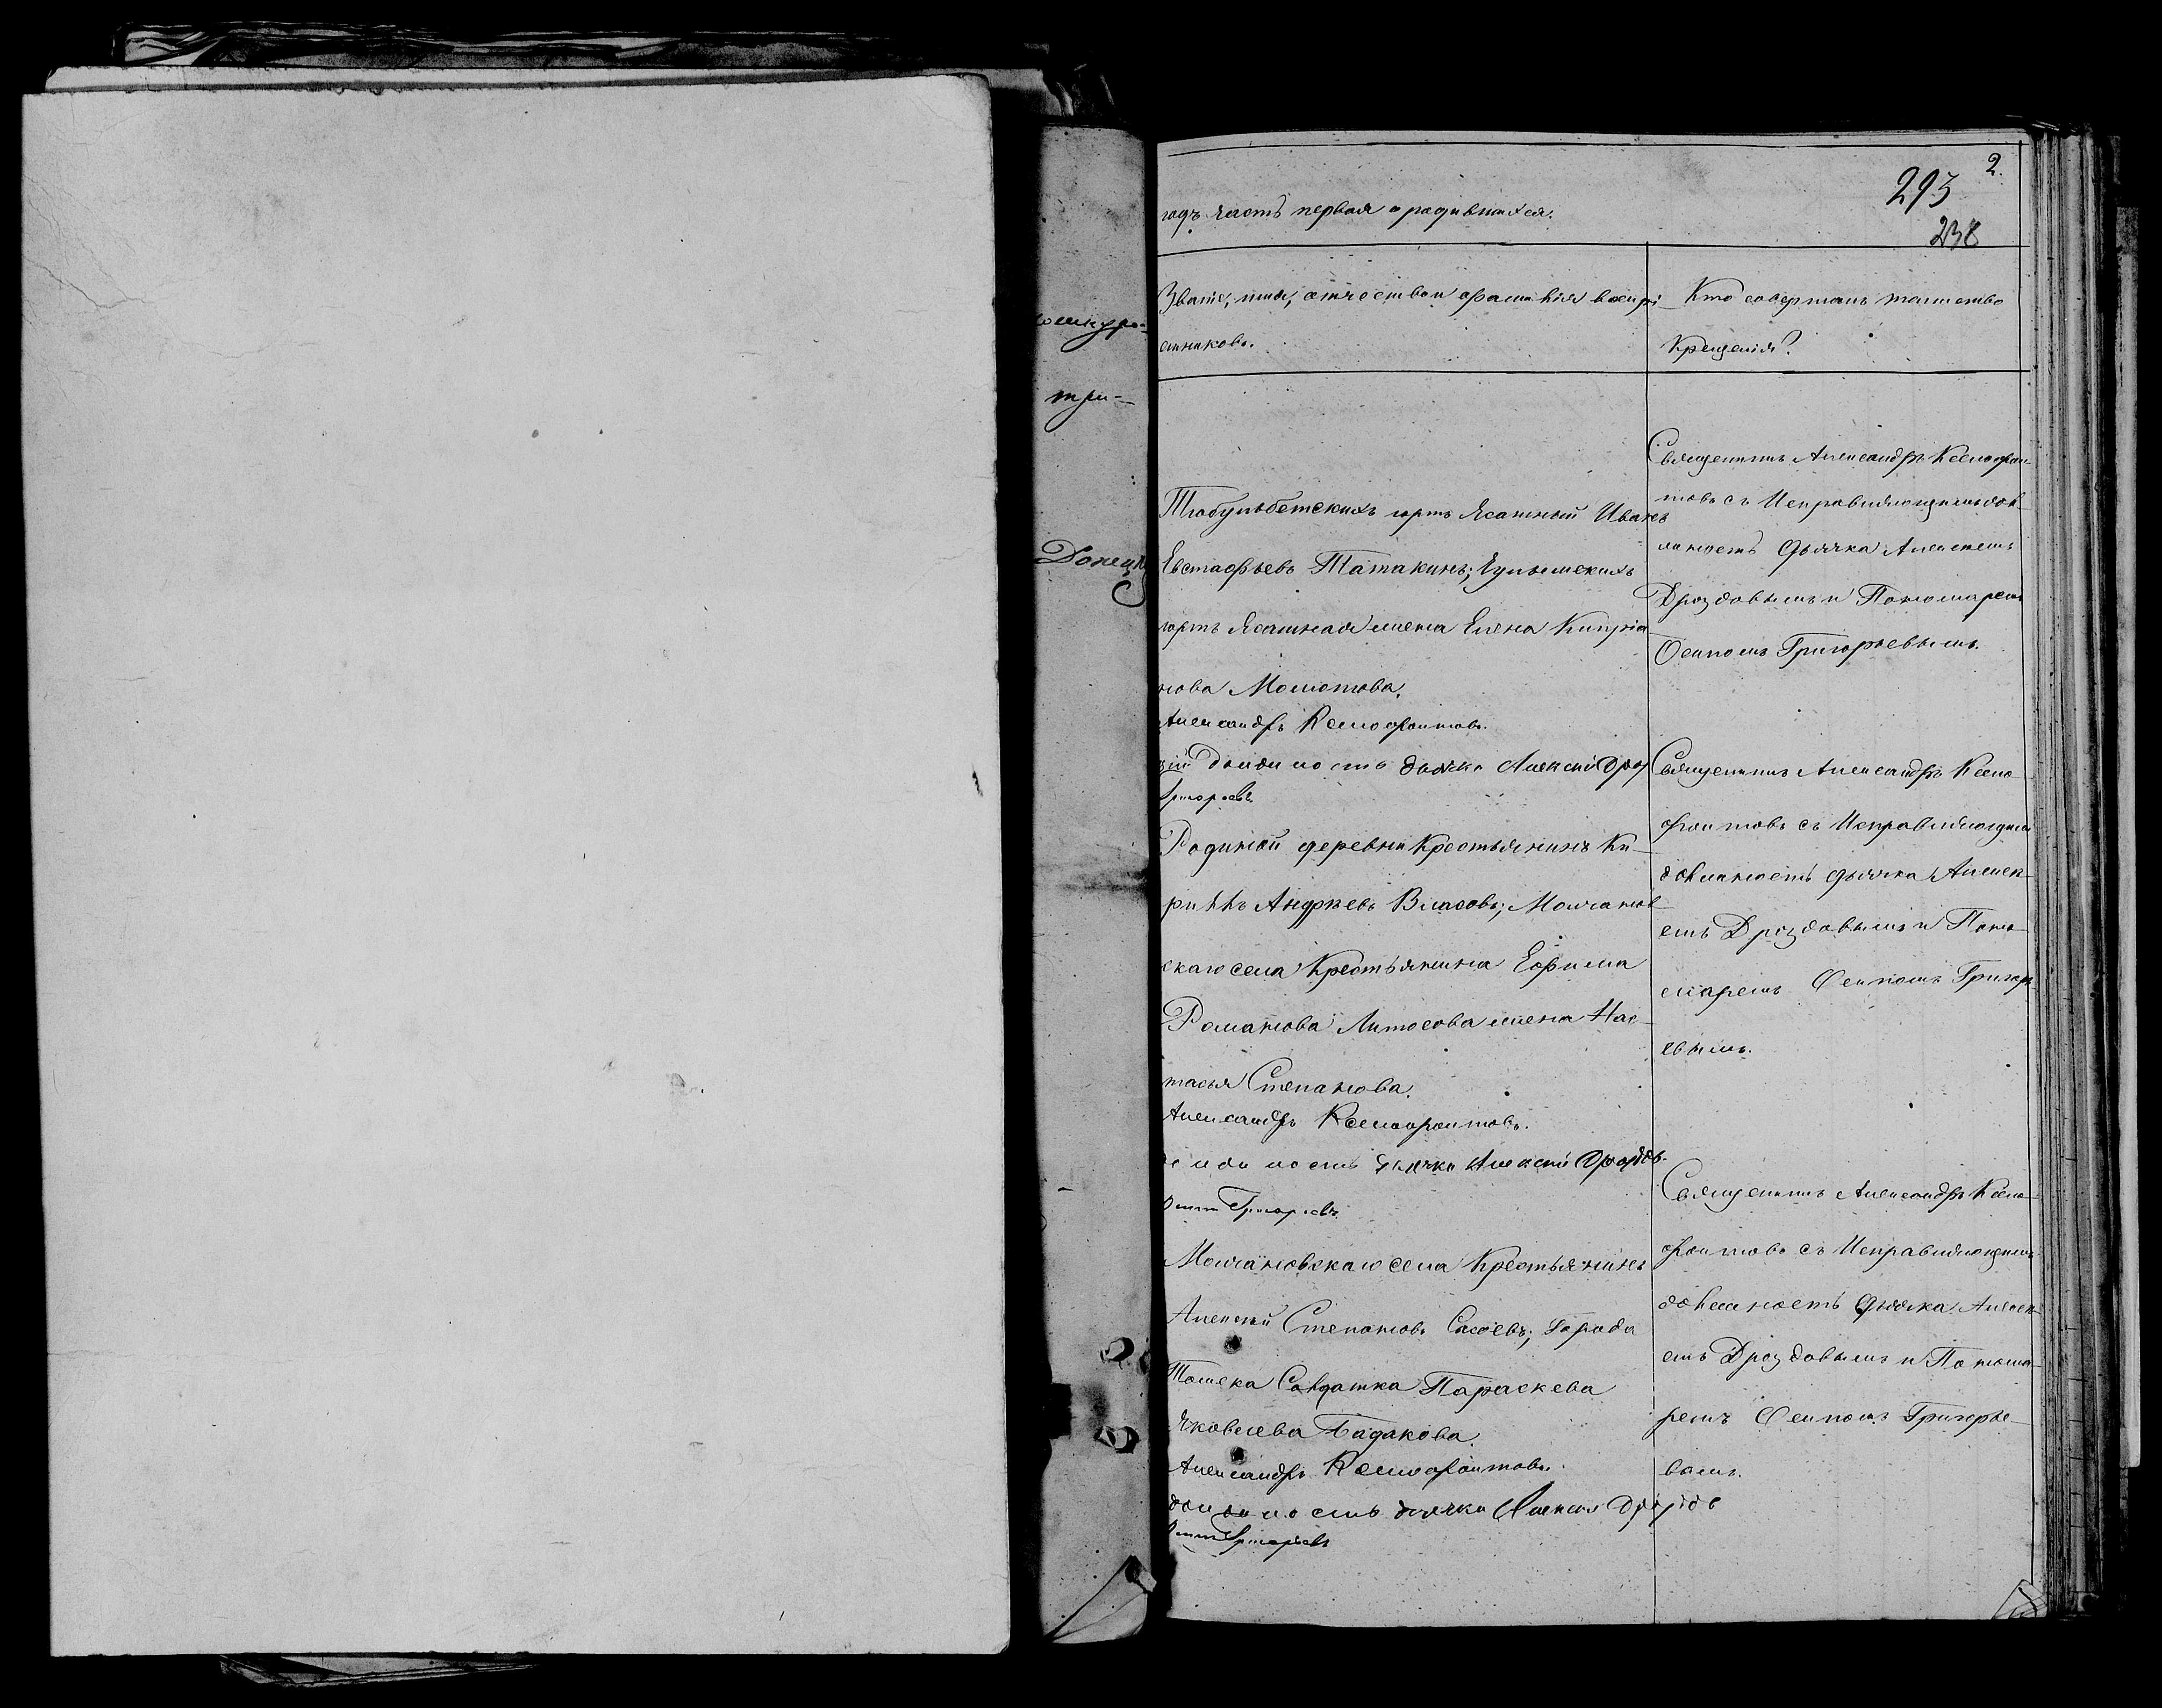 2.
293
238
годъ часть первая о родившихся.
Званіе, имя, отчество и фамилія воспрі-
емниковъ.
Кто совершалъ таинство
Крещенія?
три-
Донецк
Тюбунбетскихъ юртъ Ясашный Иванъ
Евстафьевъ Татакинъ;
юртъ Ясашная жена Елена Кипріа-
нова
Александръ Ксенофонтовъ.
должность дьячка Алексей Дроз
Григорьевъ.
Родиной деревни Крестьянинъ Ки-
рилъ Андреевъ Власовъ; Молчанов-
скаго села Крестьянина Ефима
Романова жена Нас-
тасья Степанова.
Александръ Ксенофонтовъ.
должность дьячка Алексей Дроздов
Осипъ Григорьевъ.
Молчановскаго села Крестьянинъ
Алексей Степановъ Сысоевъ; Города
Томска Солдатка Параскева
Яковлева Бадакова.
Александръ Ксенофонтовъ.
должность дьячка Алексей Дроздов
Осипъ Григорьевъ
Священникъ Александръ Ксенофон-
товъ съ Исправляющимъ дол-
жность дьячка Алексеемъ
Дроздовымъ и Пономаремъ
Осипомъ Григорьевымъ.
Священникъ Александръ Ксено-
фонтовъ съ Исправляющимъ
должность дьячка Алексе-
емъ Дроздовымъ и Поно-
маремъ Осипомъ Григорь-
евымъ.
Священникъ Александръ Ксено-
фонтовъ съ Исправляющимъ
должность дьячка Алексе-
емъ Дроздовымъ и Понома-
ремъ Осипомъ Григорье-
вымъ.